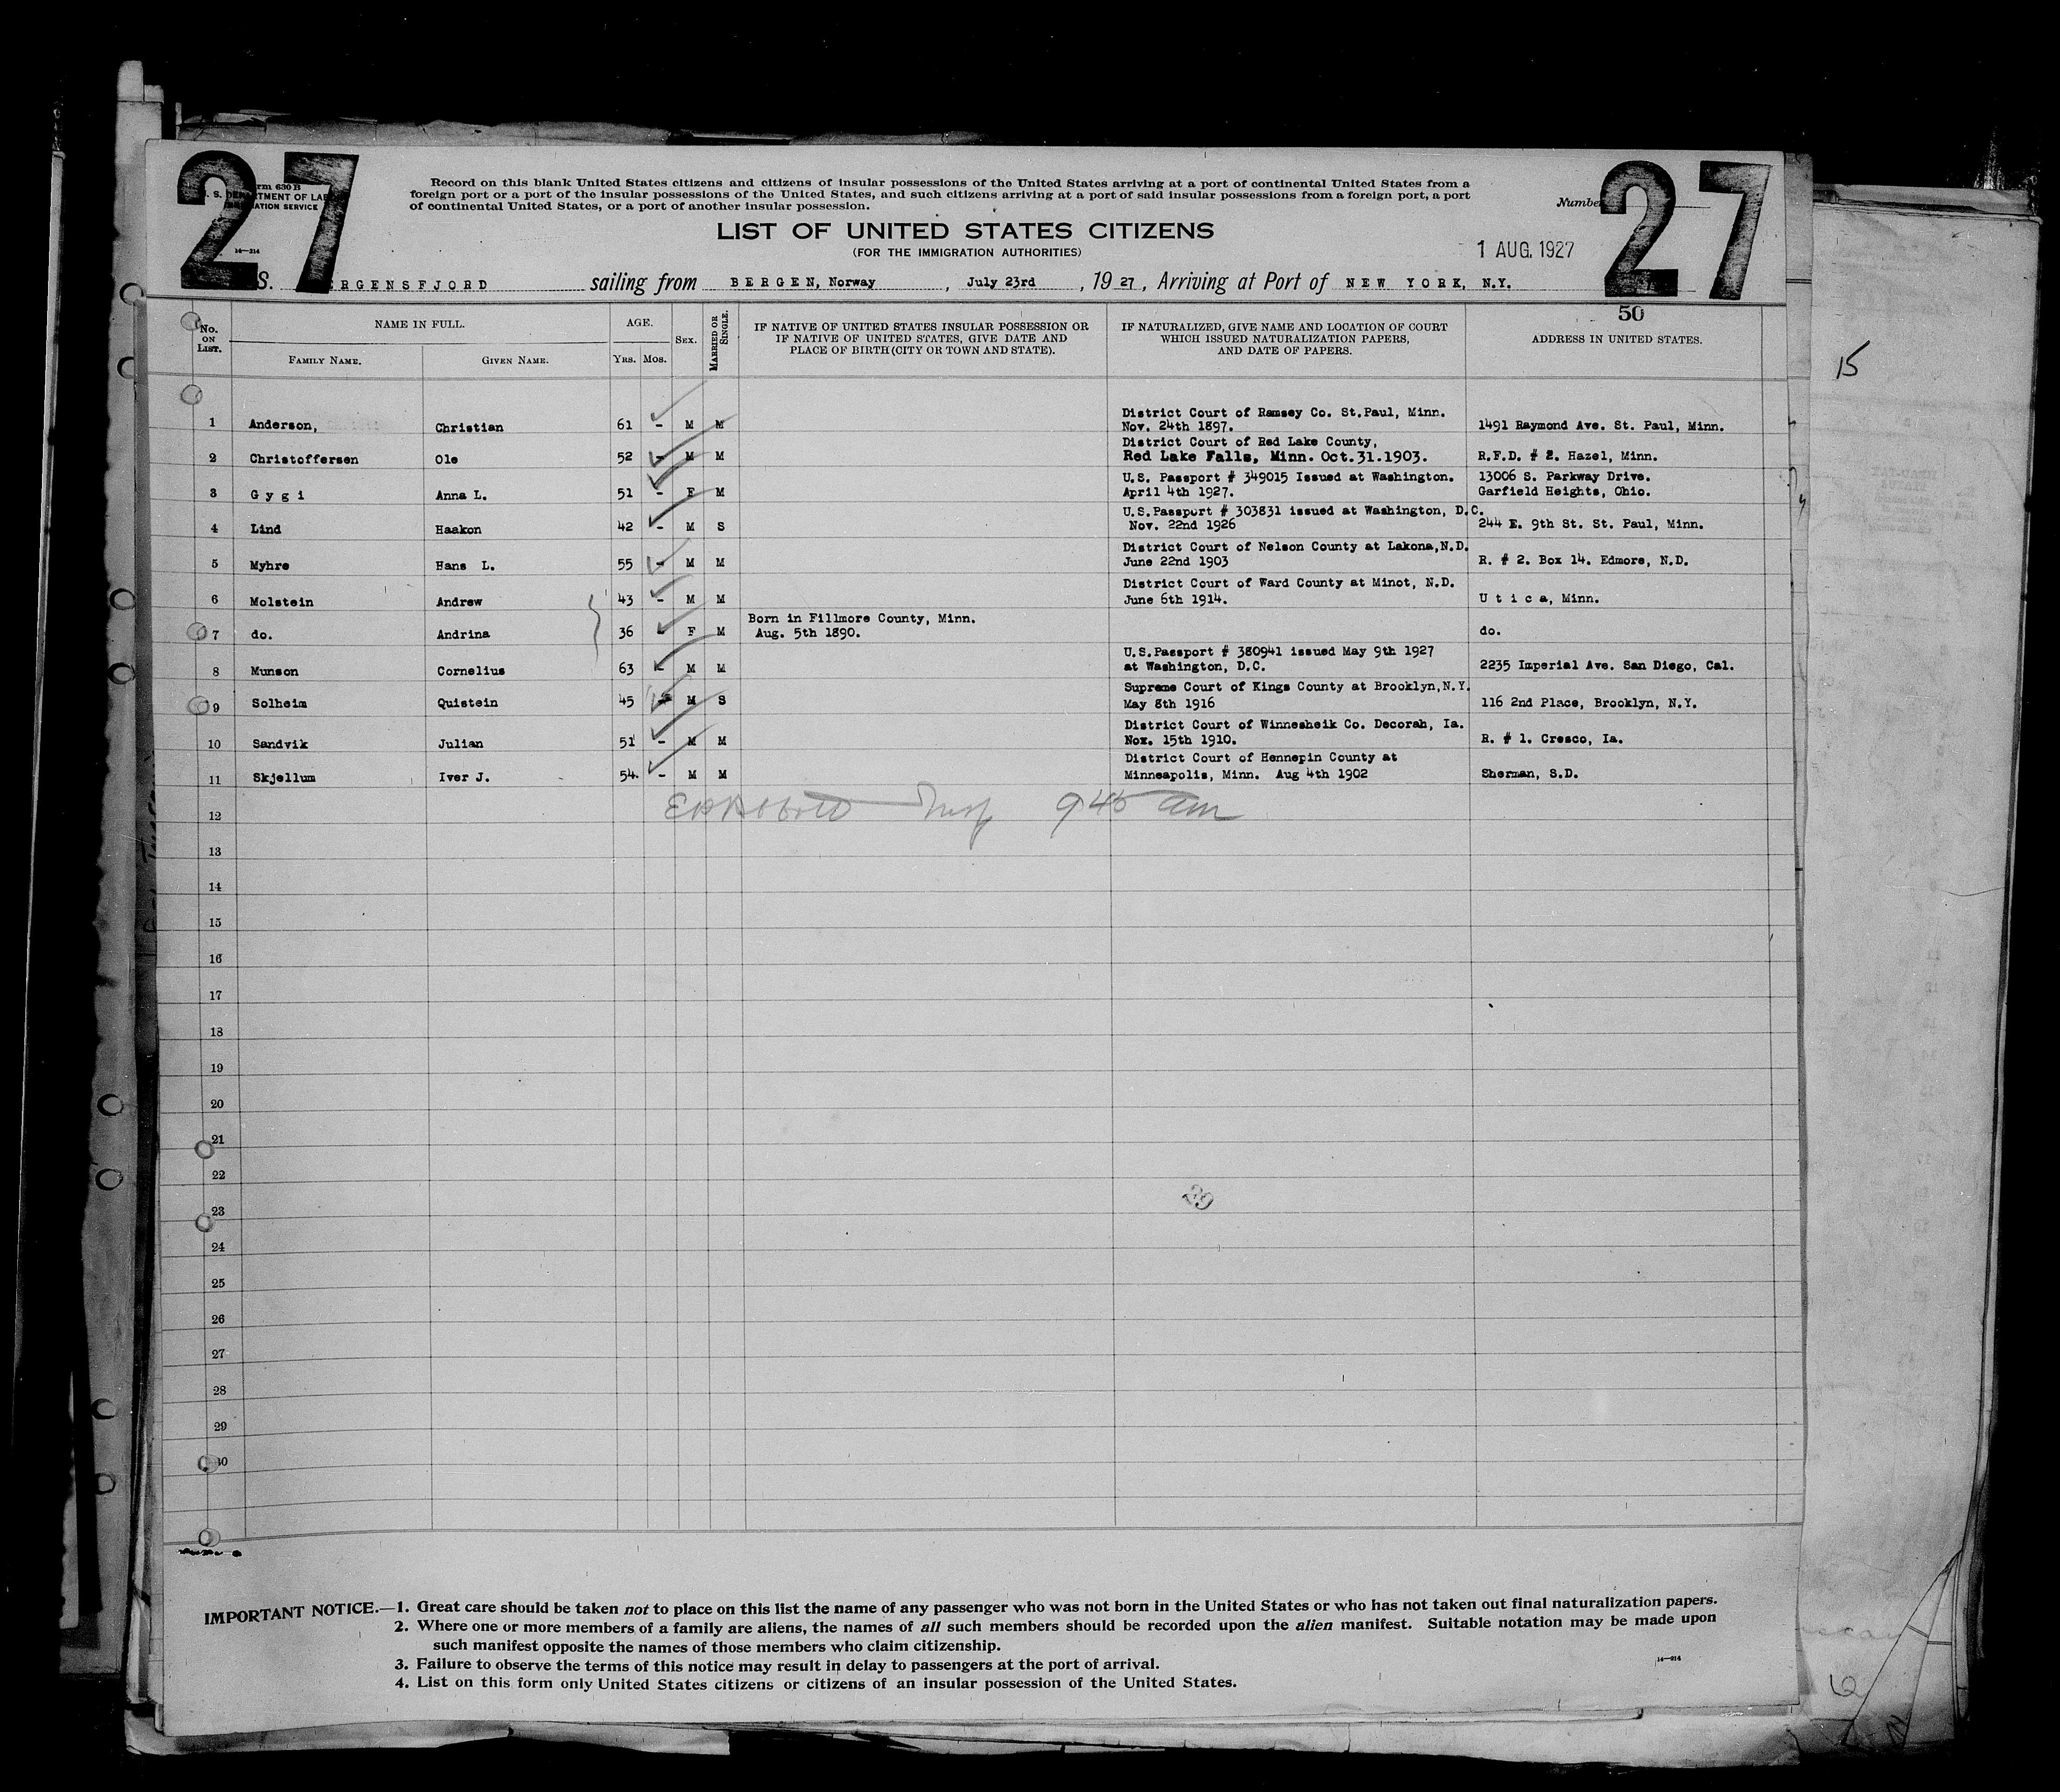 27
27
Form 630 B
U. S. DEPARTMENT OF LABOR
IMMIGRATION SERVICE
14—214
Record on this blank United States citizens and citizens of insular possessions of the United States arriving at a port of continental United States from a
foreign port or a port of the insular possessions of the United States, and such citizens arriving at a port of said insular possessions from a foreign port, a port
of continental United States, or a port of another insular possession.
Number
LIST OF UNITED STATES CITIZENS
(FOR THE IMMIGRATION AUTHORITIES)
1 AUG. 1927
S. BERGENSFJORD sailing from BERGEN, Norway, July 23rd, 1927, Arriving at Port of NEW YORK, N.Y.
50
No. ON LIST.
NAME IN FULL.
FAMILY NAME. GIVEN NAME.
AGE.
YRS. MOS.
SEX.
MARRIED OR SINGLE.
IF NATIVE OF UNITED STATES INSULAR POSSESSION OR
IF NATIVE OF UNITED STATES, GIVE DATE AND
PLACE OF BIRTH (CITY OR TOWN AND STATE).
IF NATURALIZED, GIVE NAME AND LOCATION OF COURT
WHICH ISSUED NATURALIZATION PAPERS,
AND DATE OF PAPERS.
ADDRESS IN UNITED STATES.
15
District Court of Ramsey Co. St.Paul, Minn.
1 Anderson, Christian 61 - M M Nov. 24th 1897. 1491 Raymond Ave. St. Paul, Minn.
District Court of Red Lake County,
2 Christoffersen Ole 52 - M M Red Lake Falls, Minn. Oct.31.1903. R.F.D. # 2. Hazel, Minn.
U.S. Passport # 349015 Issued at Washington. 13006 S. Parkway Drive.
3 Gygi Anna L. 51 - F M April 4th 1927. Garfield Heights, Ohio.
U.S.Passport # 303831 issued at Washington, D.C.
4 Lind Haakon 42 - M S Nov. 22nd 1926 244 E. 9th St. St. Paul, Minn.
District Court of Nelson County at Lakona,N.D.
5 Myhre Hans L. 55 - M M June 22nd 1903 R. # 2. Box 14. Edmore, N.D.
District Court of Ward County at Minot, N.D.
6 Molstein Andrew 43 - M M June 6th 1914. Utica, Minn.
Born in Fillmore County, Minn.
7 do. Andrina 36 - F M Aug. 5th 1890. do.
U.S.Passport # 380941 issued May 9th 1927
8 Munson Cornelius 63 - M M at Washington, D.C. 2235 Imperial Ave. San Diego, Cal.
Supreme Court of Kings County at Brooklyn,N.Y.
9 Solheim Quistein 45 M S May 8th 1916 116 2nd Place, Brooklyn, N.Y.
District Court of Winnesheik Co. Decorah, Ia.
10 Sandvik Julian 51 - M M Nox. 15th 1910. R. # 1. Cresco, Ia.
District Court of Hennepin County at
11 Skjellum Iver J. 54. - M M Minneapolis, Minn. Aug 4th 1902 Sherman, S.D.
12 Insp 945 am
13
14
15
16
17
18
19
20
21
22
23
24
25
26
27
28
29
30
IMPORTANT NOTICE.—1. Great care should be taken not to place on this list the name of any passenger who was not born in the United States or who has not taken out final naturalization papers.
2. Where one or more members of a family are aliens, the names of all such members should be recorded upon the alien manifest. Suitable notation may be made upon
such manifest opposite the names of those members who claim citizenship.
3. Failure to observe the terms of this notice may result in delay to passengers at the port of arrival.
4. List on this form only United States citizens or citizens of an insular possession of the United States.
14—214